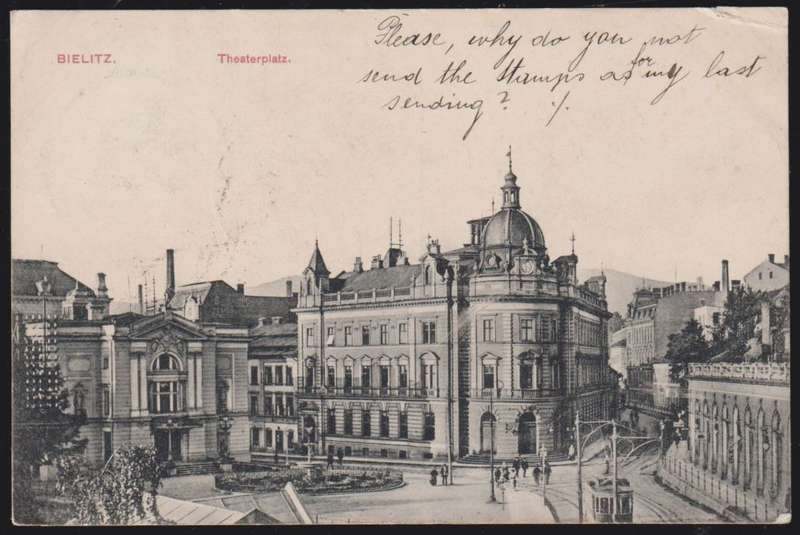 BIELITZ.
Theaterplatz.
Please, why do you not
send the stamps as for my last
sending? ./.